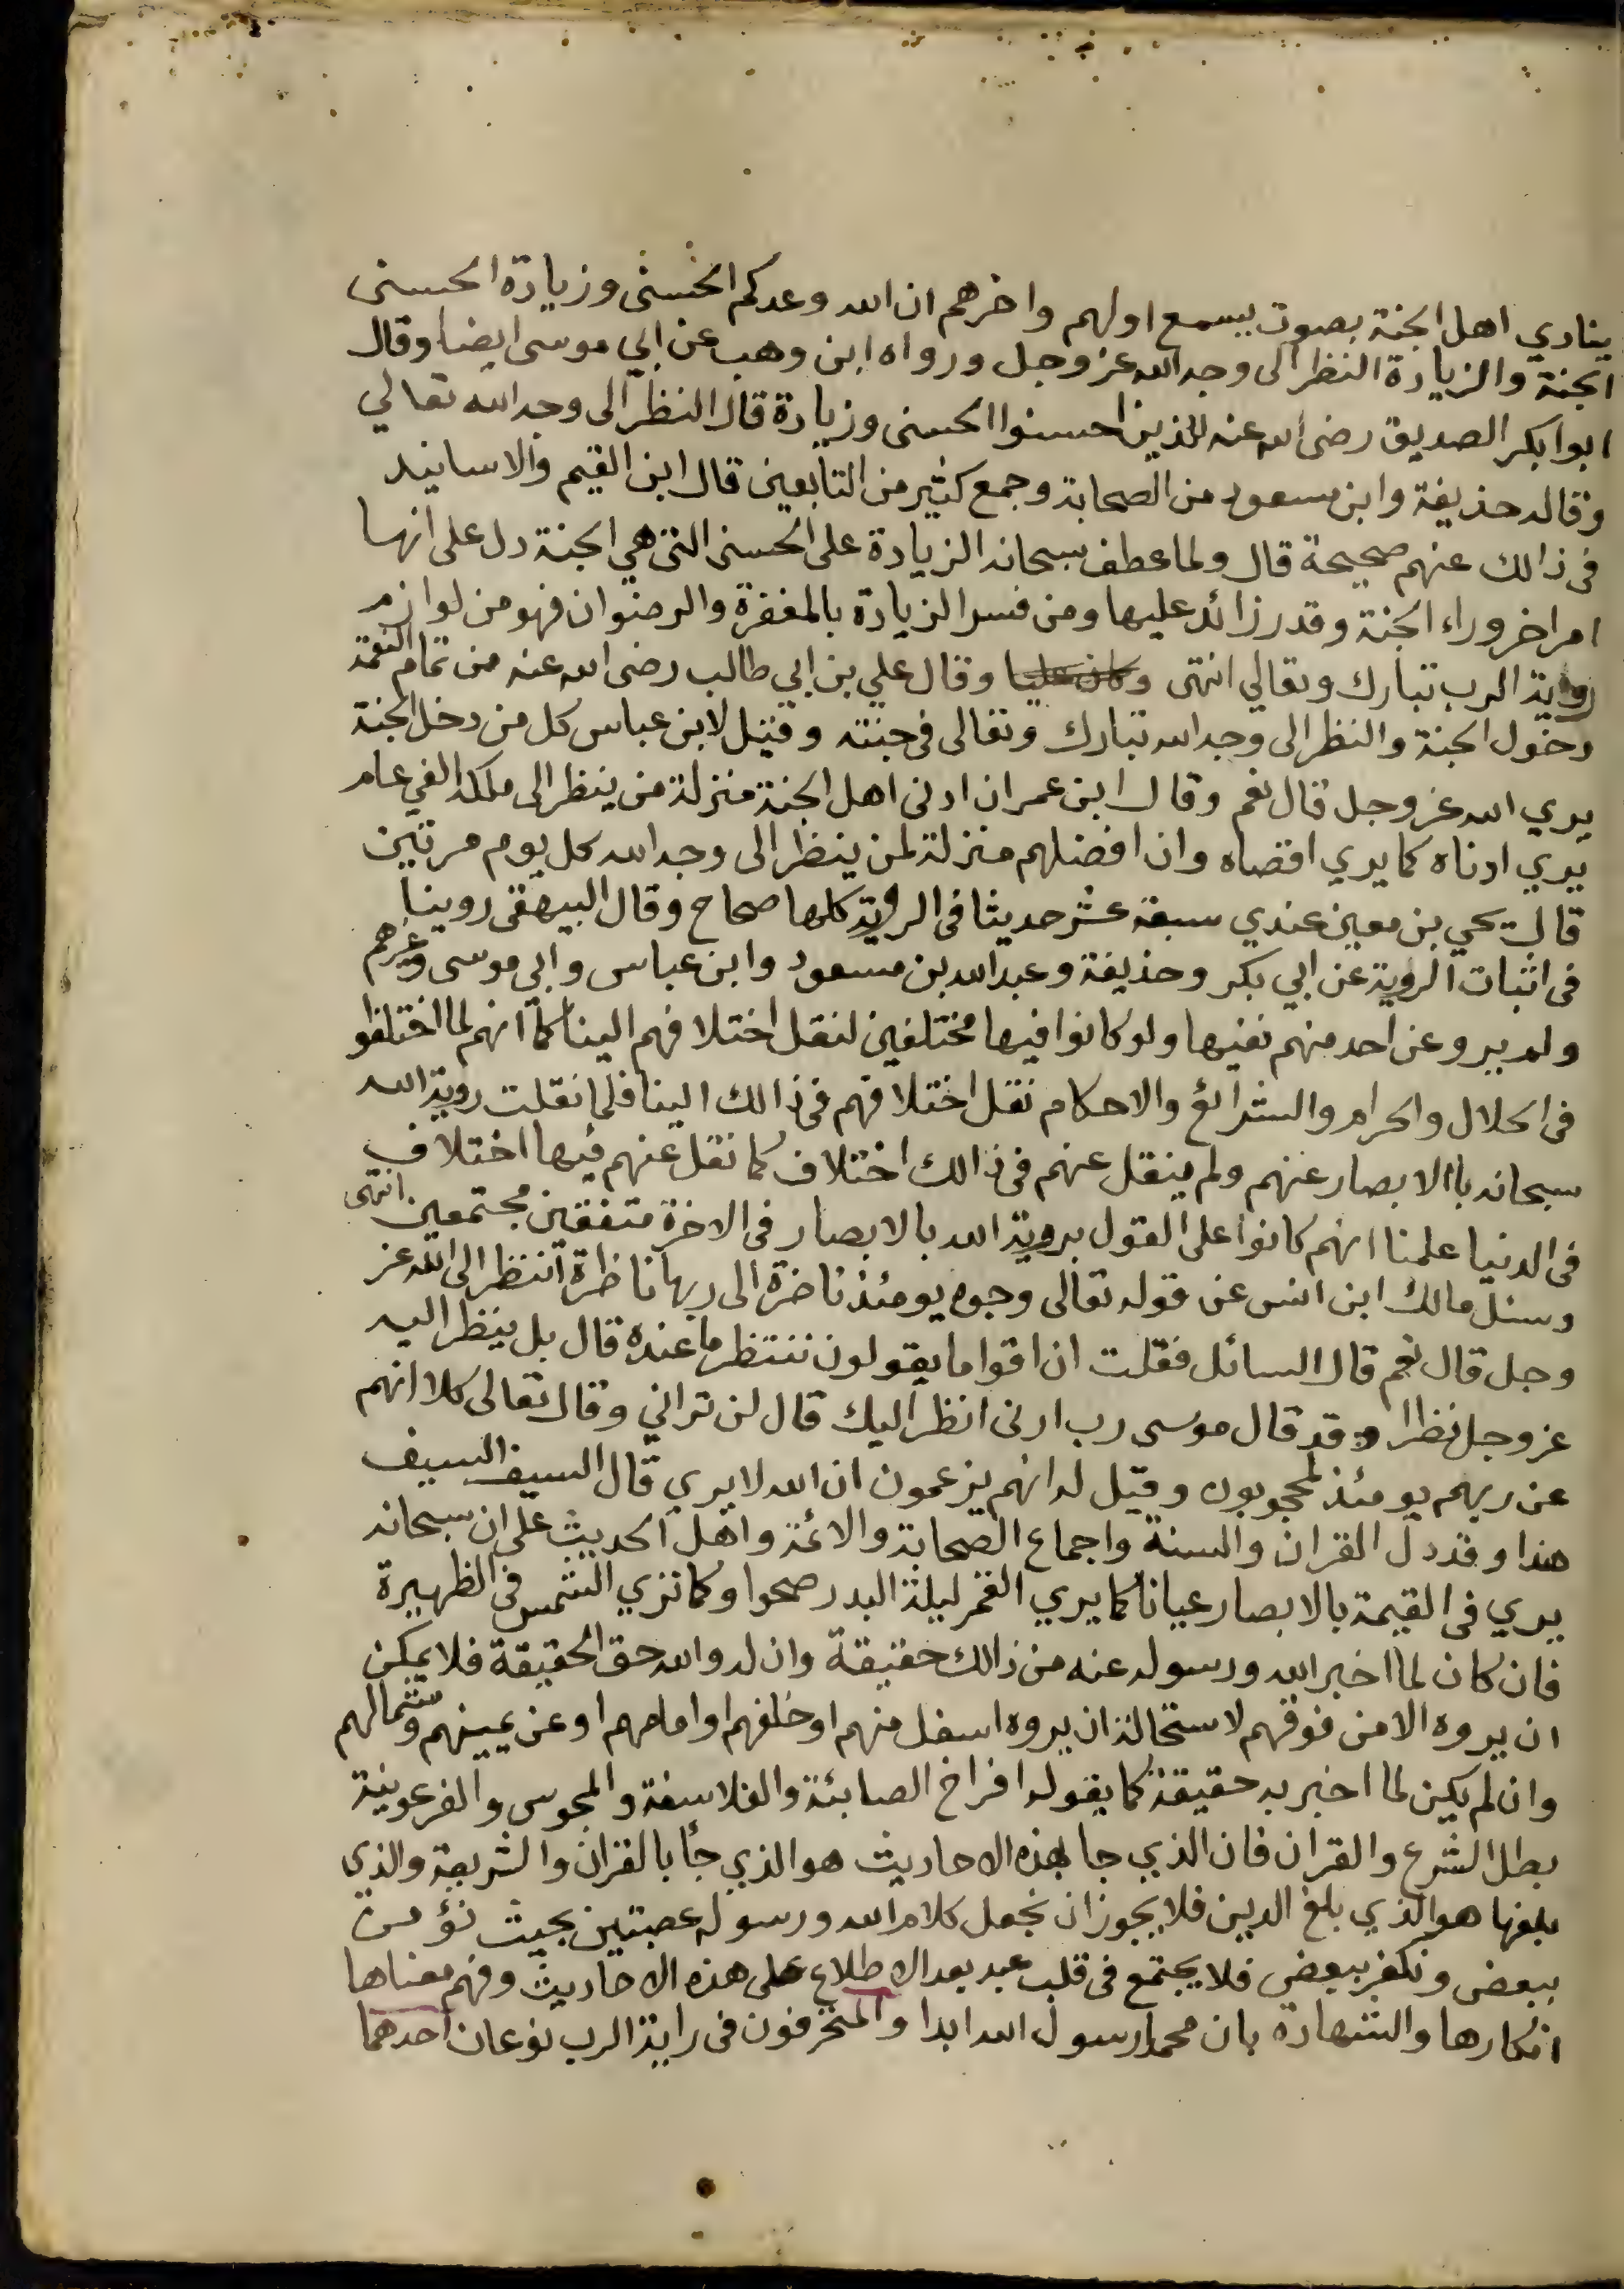 ينادي اهل الجنة بصوت يسمع اولهم واخرهم ان الله وعدكم الحسنى وزيادة الحسنى
الجنة والزيادة النظر الى وجه الله عز وجل ورواه ابن وهب عن ابي موسى ايضا وقال
ابوا بكر الصديق رضى الله عنه للذين احسنوا الحسنى وزيادة قال النظر الى وجه الله تعالي
وقاله حذيفة وابن مسعود من الصحابة وجمع كثير من التابعين قال ابن القيم والاسانيد
فى ذالك عنهم صحيحة قال ولما عطف سبحانه الزيادة على الحسنى التى هي الجنة دل على انها
امر اخر وراء الجنة وقدر زائد عليها ومن فسر الزيادة بالمغفرة والرضوان فهو من لوازم
رؤية الرب تبارك وتعالي انتهى وقال علي بن ابي طالب رضى الله عنه من تمام النعمة
دخول الجنة والنظر الى وجه الله تبارك وتعالى فى جنته وقيل لابن عباس كل من دخل الجنة
يري الله عز وجل قال نعم وقال ابن عمر ان ادنى اهل الجنة منزلة من ينظر الى ملكه الفي عام
يري ادناه كما يري اقصاه وان افضلهم منزلة لمن ينظر الى وجه الله كل يوم مرتين
قال يحي بن معين عندي سبعة عشر حديثا فى الروية كلها صحاح وقال البيهقى روينا
فى اثبات الروية عن ابي بكر وحذيفة وعبد الله بن مسعود وابن عباس وابي موسى وغيرهم
ولم يرو عن احد منهم نفيها ولو كانوا فيها مختلفين لنقل اختلافهم الينا كما انهم لما اختلفوا
فى الحلال والحرام والشرائع والاحكام نقل اختلافهم فى ذالك الينا فلما نقلت روية الله
سبحانه باالابصار عنهم ولم ينقل عنهم فى ذالك اختلاف كما نقل عنهم فيها اختلاف
فى الدنيا علمنا انهم كانوا على القول بروية الله بالابصار فى الاخرة متفقين مجتمعين انتهى
وسئل مالك ابن انس عن قوله تعالى وجوه يومئذ ناضرة الى ربها ناظرة اتنظر الى الله عز
وجل قال نعم قال السائل فقلت ان اقواما يقولون تنتظر ما عنده قال بل ينظر اليه
عز وجل نظرا وقد قال موسى رب ارنى انظر اليك قال لن تراني وقال تعالى كلا انهم
عن ربهم يومئذ لمحجوبون وقيل له انهم يزعمون ان الله لا يري قال السيف السيف
هذا وقد دل القران والسنة واجماع الصحابة والائمة واهل الحديث على ان سبحانه
يري فى القيمة بالابصار عيانا كما يري القمر ليلة البدر صحوا وكما تري الشمس فى الظهيرة
فان كان لما اخبر الله ورسوله عنه من ذالك حقيقة وان له والله حق الحقيقة فلا يمكن
ان يروه الا من فوقهم لاستحالة ان يروه اسفل منهم او خلفهم او امامهم او عن يمينهم وشمالهم
وان لم يكن لما اخبر به حقيقة كما يقوله افراخ الصابئة والفلاسفة والمجوس والفرعونية
بطل الشرع والقران فان الذي جا بهذه الاحاديث هو الذي جأ بالقران والشريعة والذي
بلغها هو الذي بلغ الدين فلا يجوز ان نجعل كلام الله ورسوله بحيث نؤمن
ببعض ونكفر ببعض فلا يجتمع فى قلب عبد بعد الاطلاع على هذه الاحاديث وفهم معناها
انكارها والشهادة بان محمدا رسول الله ابدا والمنحرفون فى راية الرب نوعان احدهما